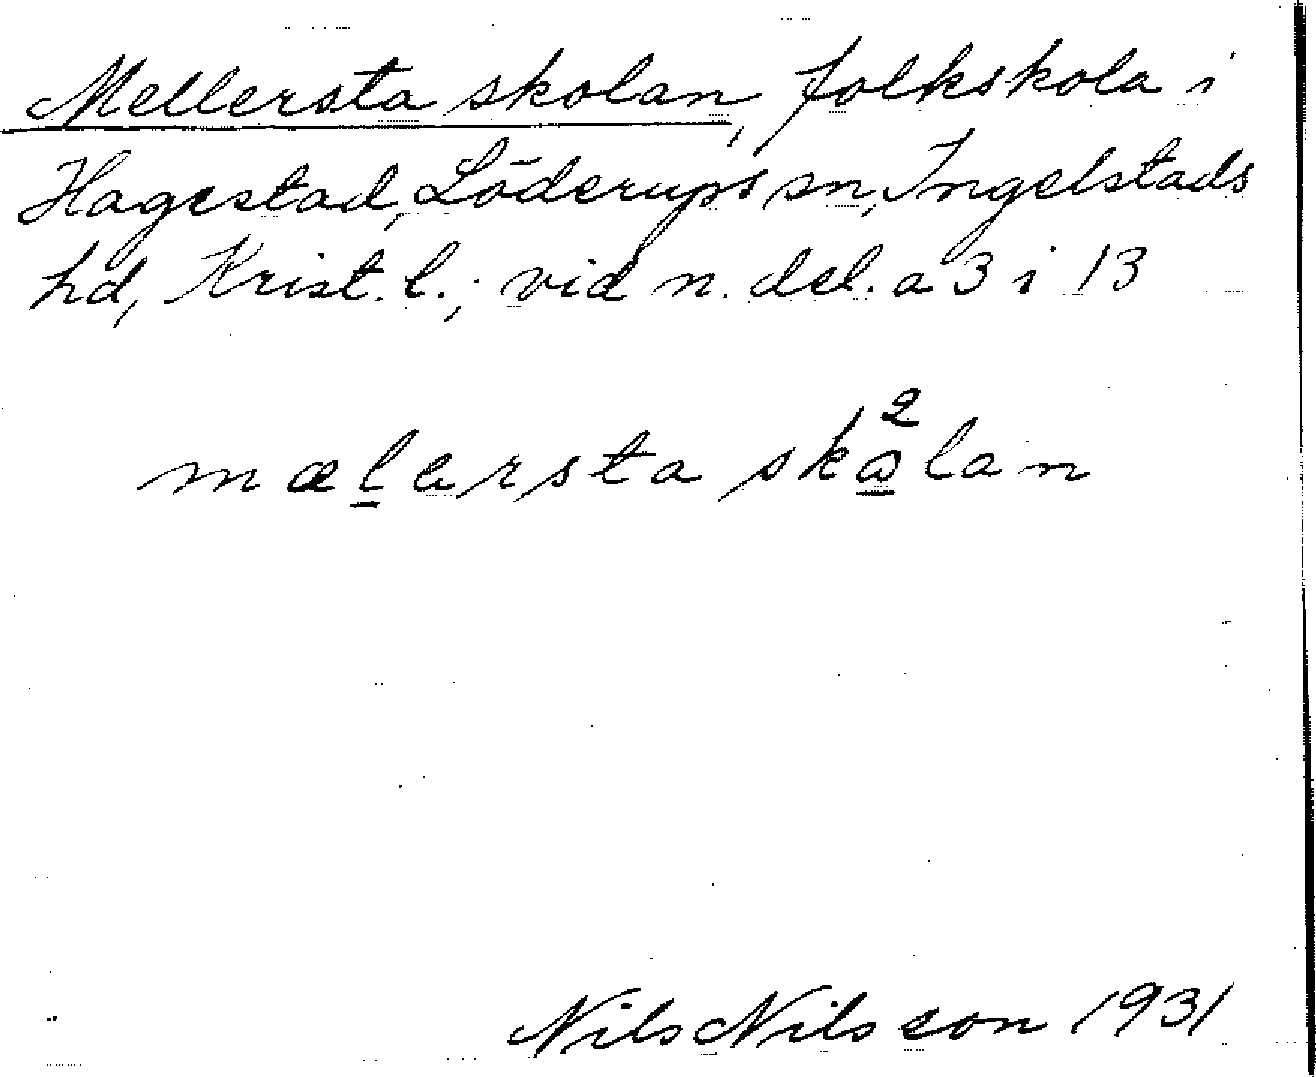 Mellersta skolan, folkskola i
Hagestad, Löderups sn, Ingelstads
hd, Krist. l.; vid n. del. a 3 i 13
mælersta skå²lan
Nils Nilsson 1931